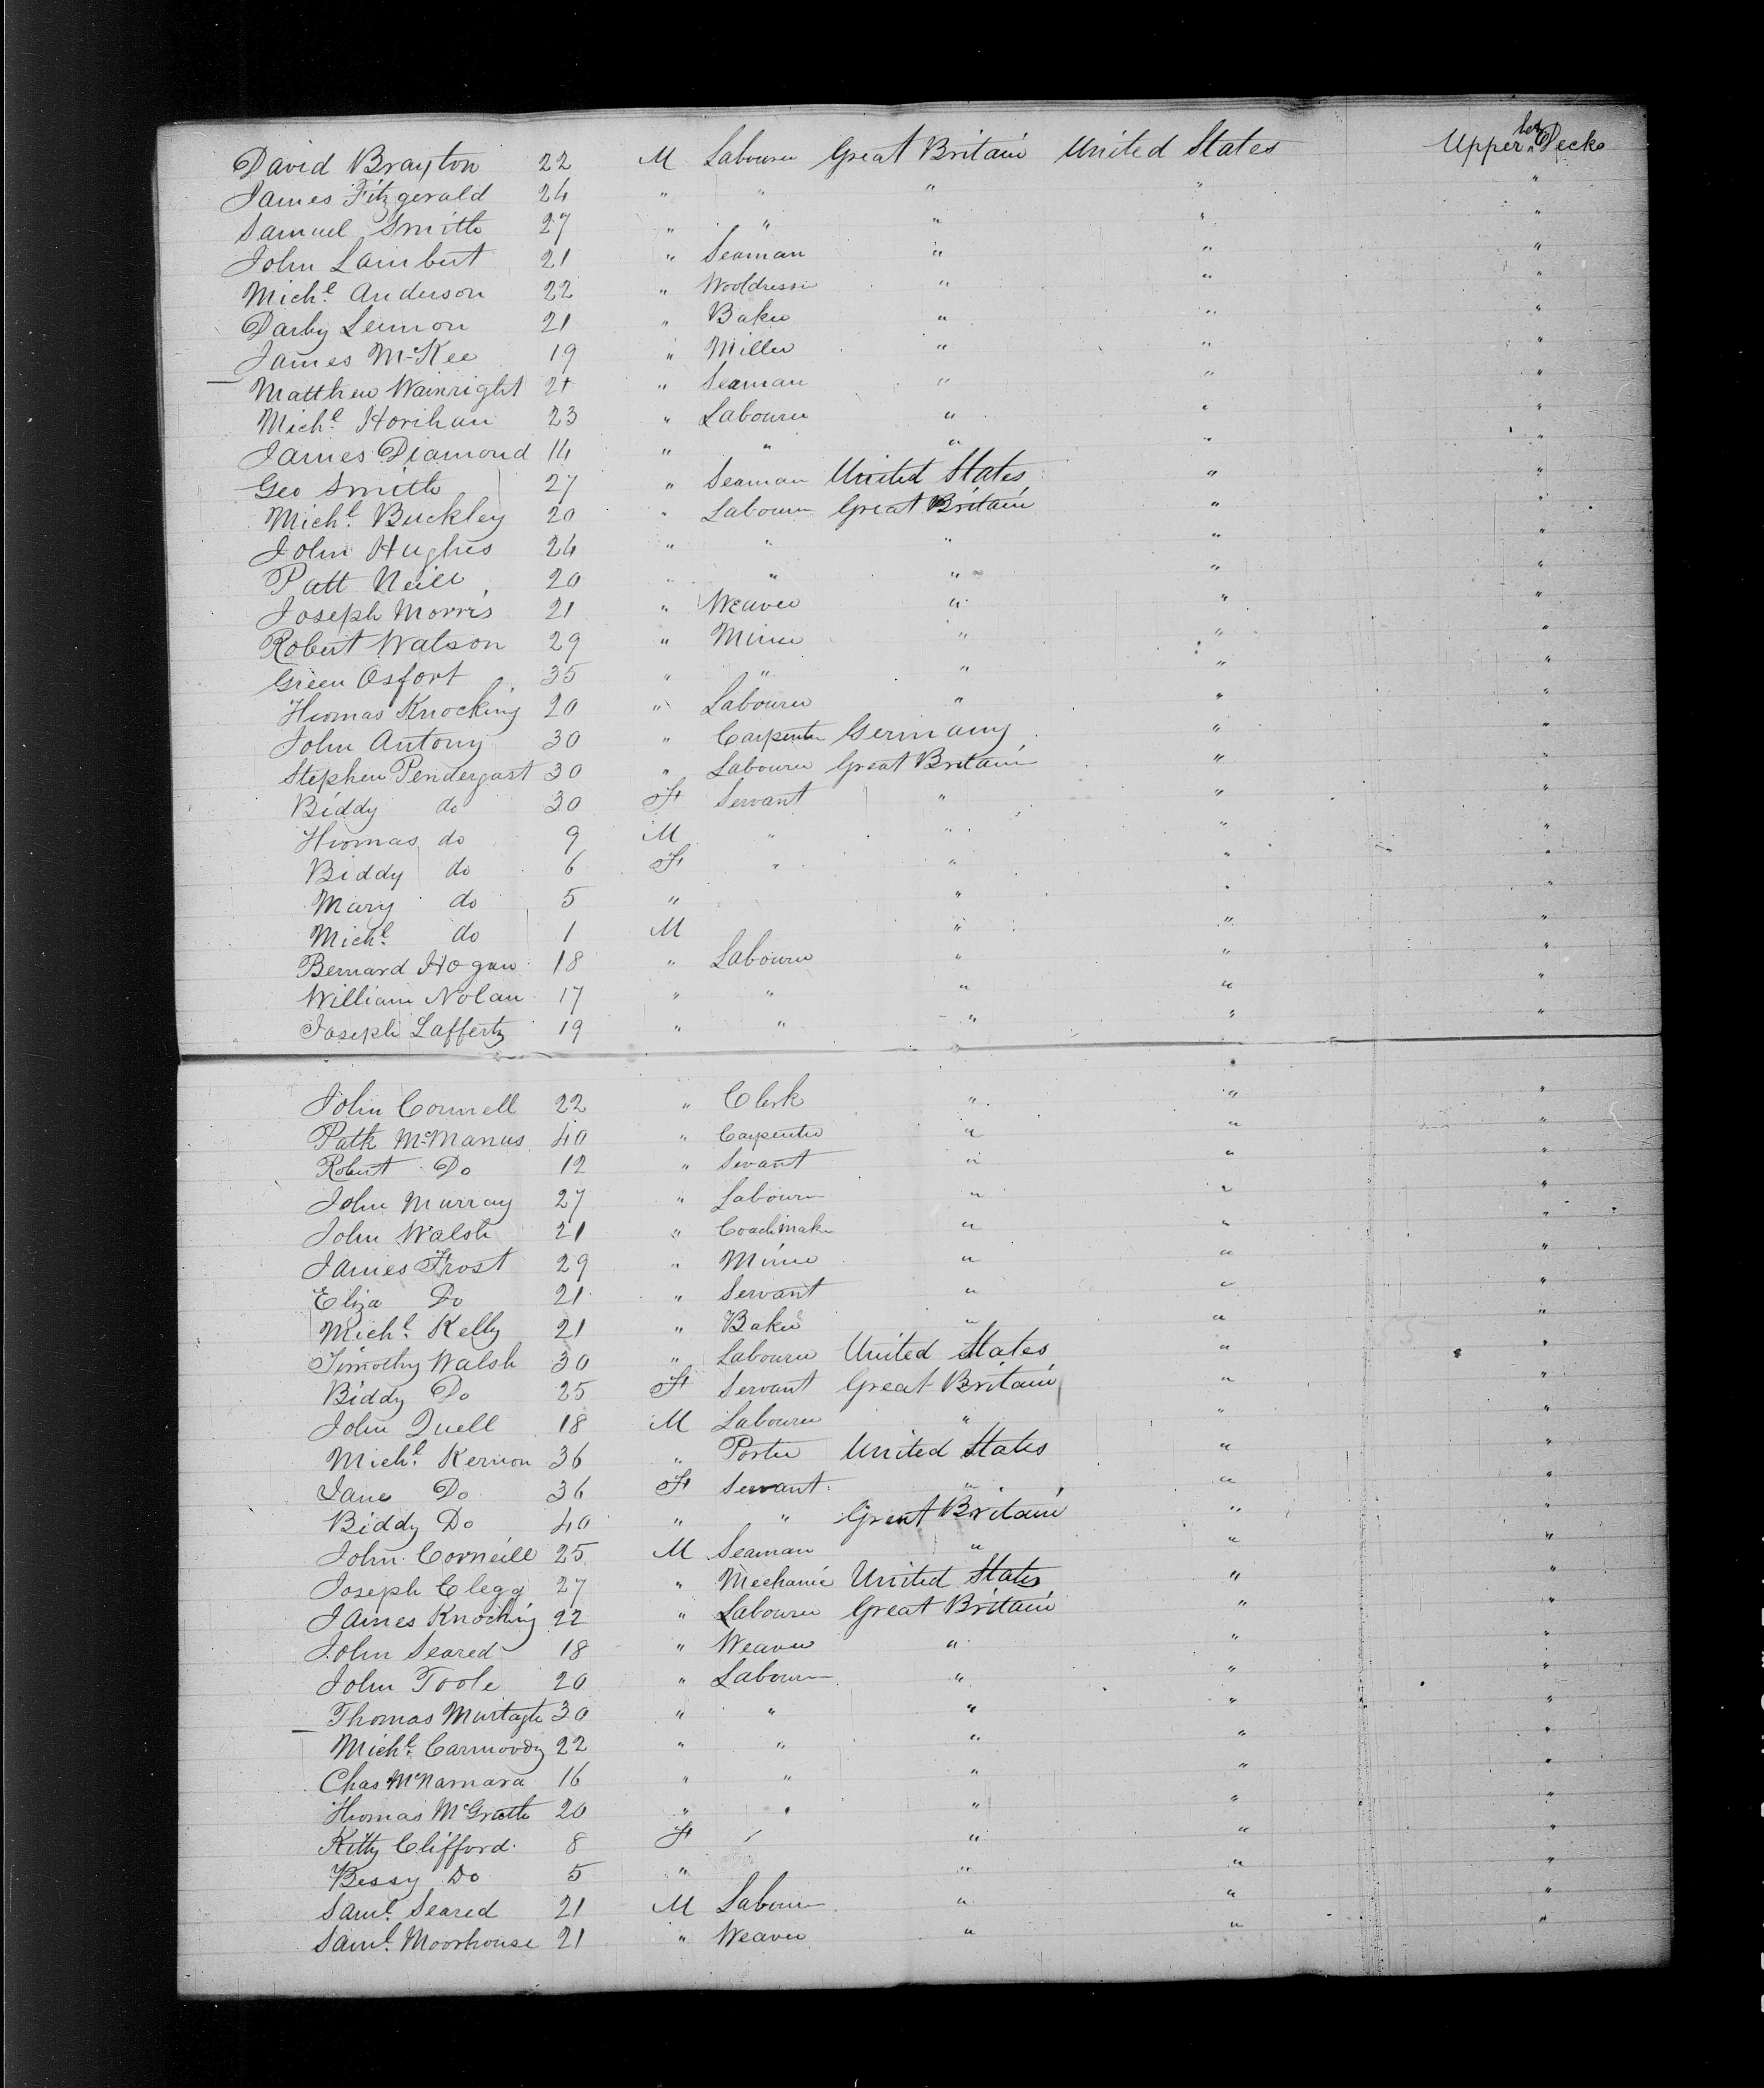 David Brayton 22 M Labourer Great Britain United States Upper bet Decks
James Fitzgerald 24 " " " " "
Samuel Smith 27 " " " " "
John Lambert 21 " Seaman " " "
Mich.l Anderson 22 " Wooldresser " " "
Darby Lennon 21 " Baker " " "
James McKee 19 " Miller " " "
Matthew Wainright 21 " Seaman " " "
Mich.l Horihan 23 " Labourer " " "
James Diamond 14 " " " " "
Geo Smith 27 " Seaman United States " "
Mich.l Buckley 20 " Labourer Great Britain " "
John Hughes 24 " " " " "
Patt Neill 20 " " " " "
Joseph Morris 21 " Weaver " " "
Robert Watson 29 " Miner " " "
Green Osfort 35 " " " " "
Thomas Knocking 20 " Labourer " " "
John Antony 30 " Carpenter Germany " "
Stephen Pendergast 30 " Labourer Great Britain " "
Biddy do 30 F Servant " " "
Thomas do 9 M " " " "
Biddy do 6 F " " " "
Mary do 5 " " " "
Mich.l do 1 M " " "
Bernard Hogan 18 " Labourer " " "
William Nolan 17 " " " " "
Joseph Lafferty 19 " " " " "
John Connell 22 " Clerk " " "
Patk McManus 40 " Carpenter " " "
Robert Do 12 " Servant " " "
John Murray 27 " Labourer " " "
John Walsh 21 " Coachmaker " " "
James Frost 29 " Miner " " "
Eliza Do 21 " Servant " " "
Mich.l Kelly 21 " Baker " " "
Timothy Walsh 30 " Labourer United States " "
Biddy Do 25 F Servant Great Britain " "
John Quell 18 M Labourer " " "
Mich.l Kernon 36 " Porter United States " "
Jane Do 36 F Servant " " "
Biddy Do 40 " " Great Britain " "
John Corneill 25 M Seaman " " "
Joseph Clegg 27 " Mechanic United States " "
James Knocking 22 " Labourer Great Britain " "
John Seared 18 " Weaver " " "
John Toole 20 " Labourer " " "
Thomas Murtagh 30 " " " " "
Mich.l Carmoody 22 " " " " "
Chas McNamara 16 " " " " "
Thomas McGrath 20 " " " " "
Kitty Clifford 8 F " " " "
Bessy Do 5 " " " "
Saml. Seared 21 M Labourer " " "
Saml. Moorhouse 21 " Weaver " " "